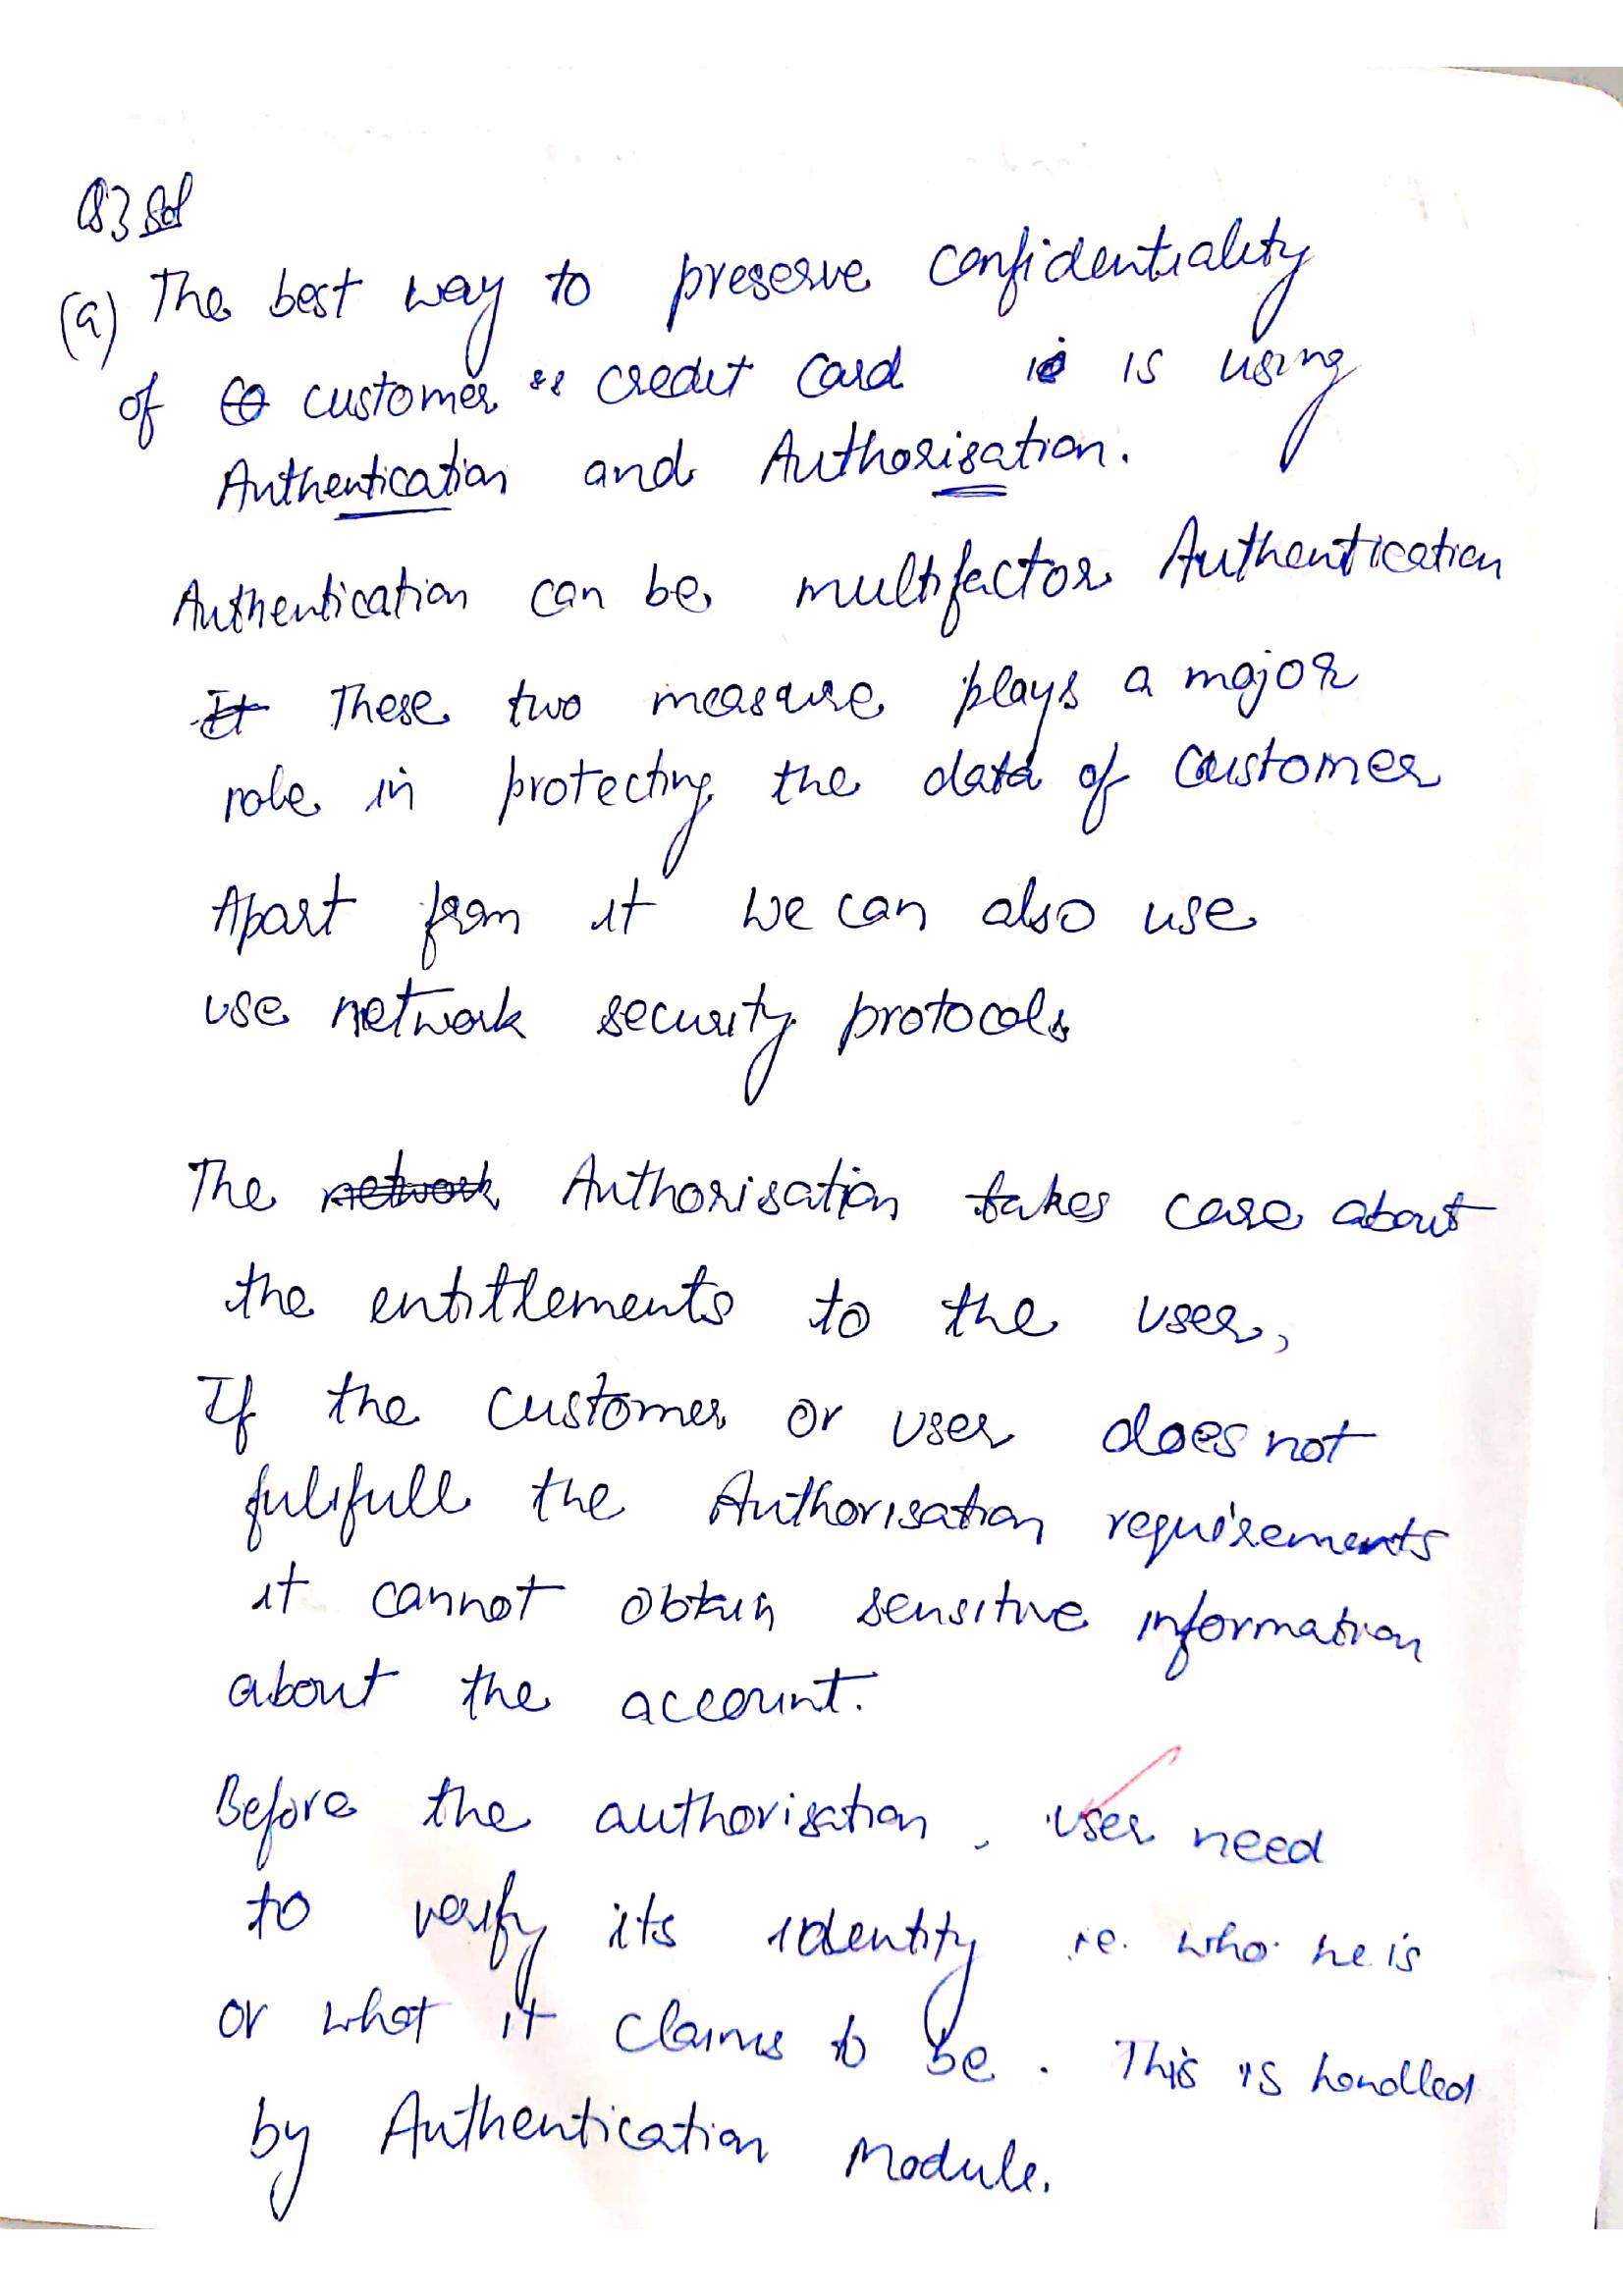 Q3 Sol
(a) The best way to preserve confidentiality
of customer's credit card is using
Authentication and Authorisation.
Authentication can be multifactor Authentication
These two measure plays a major
role in protecting the data of customer
Apart from it we can also use
use network security protocols
The network Authorisation takes care about
the entitlements to the user,
If the customer or user does not
fulifull the Authorisation requirements
it cannot obtain sensitive information
about the account.
Before the authorisation, user need
to verify its identity i.e. who he is
or what it claims to be. This is handled
by Authentication Module.